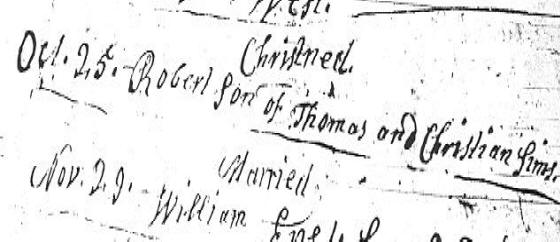 Christned.
Oct. 25. Robert Son of Thomas and Christian Sims.
Married.
Nov. 29. William